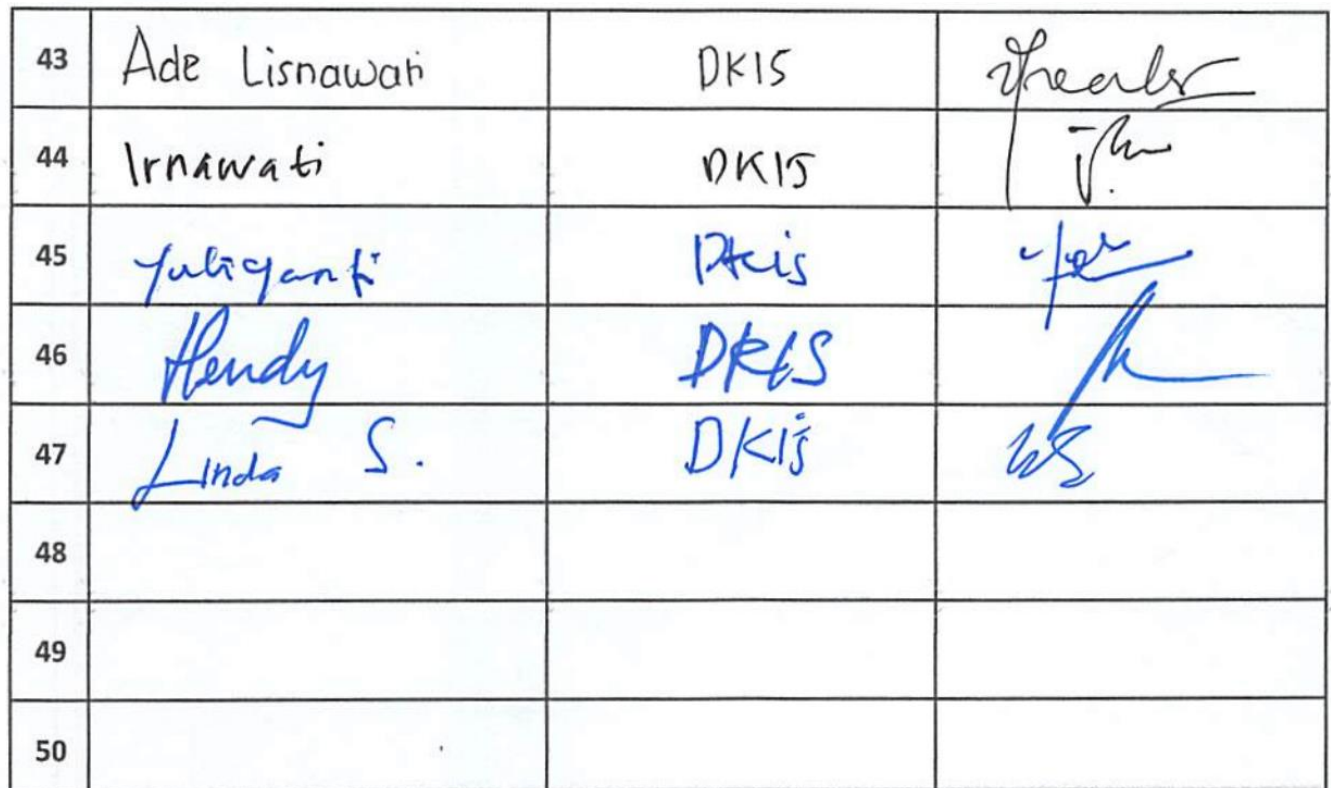 43 Ade Lisnawati DKIS
44 Irnawati DKIS
45 Yuliyanti DKis
46 Hendy DKIS
47 Linda S. DKis
48
49
50